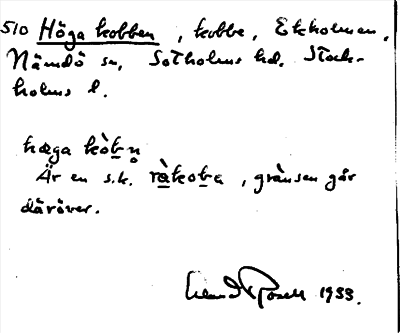 510 Höga kobben, kobbe, Ekholmen,
Nämdö sn, Sotholms hd. Stock-
holms l.
hæga kòbn̥
Är en s.k. ràkoba, gränsen går
däröver.
1933.